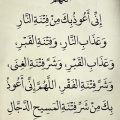 إِنِّي أَعُوذُ بِكَ مِنْ فِتْنَةِ النَّارِ
وَعَذَابِ النَّارِ، وَفِتْنَةِ الْقَبْرِ،
وَعَذَابِ الْقَبْرِ، وَشَرِّ فِتْنَةِ الْغِنَى،
وَشَرِّ فِتْنَةِ الْفَقْرِ، اللَّهُمَّ إِنِّي أَعُوذُ
بِكَ مِنْ شَرِّ فِتْنَةِ الْمَسِيحِ الدَّجَّالِ